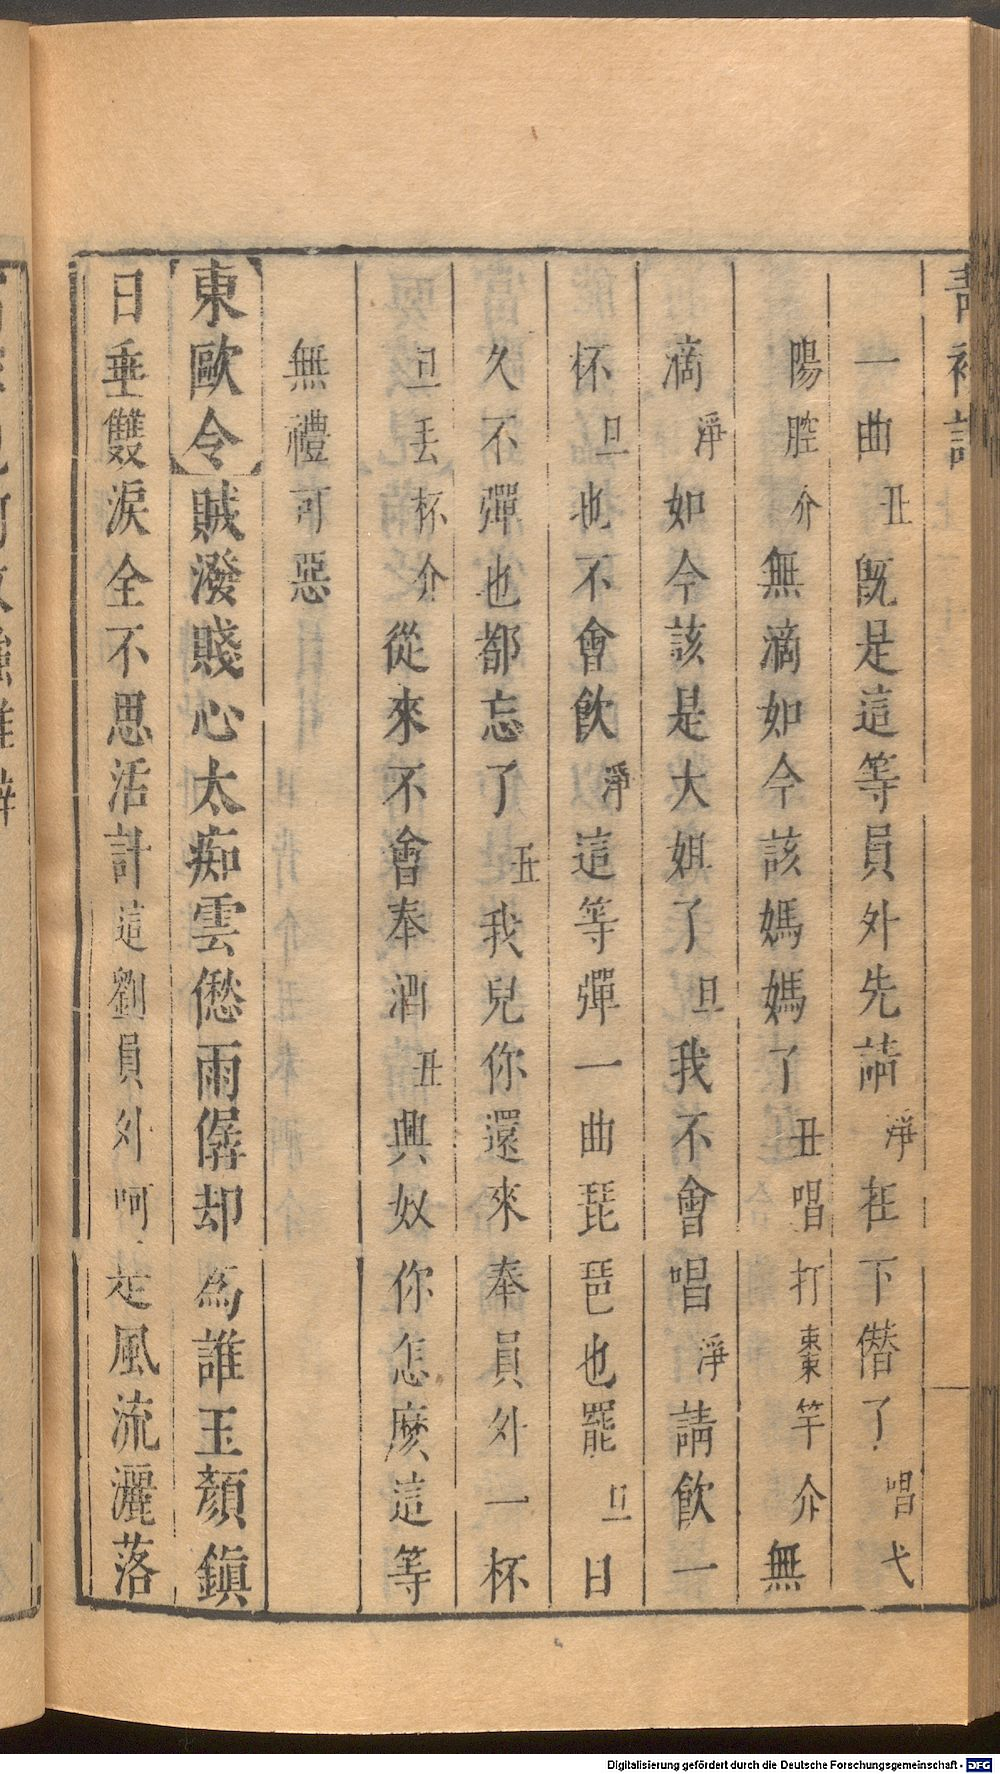 青衫記
一曲丑既是這等員外先請淨在下僭了唱弋
陽腔介無滴如今該媽媽了丑唱打棗竿介無
滴淨如今該是大姐了旦我不會唱淨請飲一
杯旦也不會飲淨這等彈一曲琵琶也罷旦日
久不彈也都忘了丑我兒你還來奉員外一杯
旦丟杯介從來不會奉酒丑興奴你怎麽這等
無禮可惡
東歐令賊潑賤心太痴雲僽雨僝却為誰玉顏鎭
日垂雙淚全不思活計這劉員外呵是風流灑落
Digitalisierung gefördert durch die Deutsche Forschungsgemeinschaft - DFG